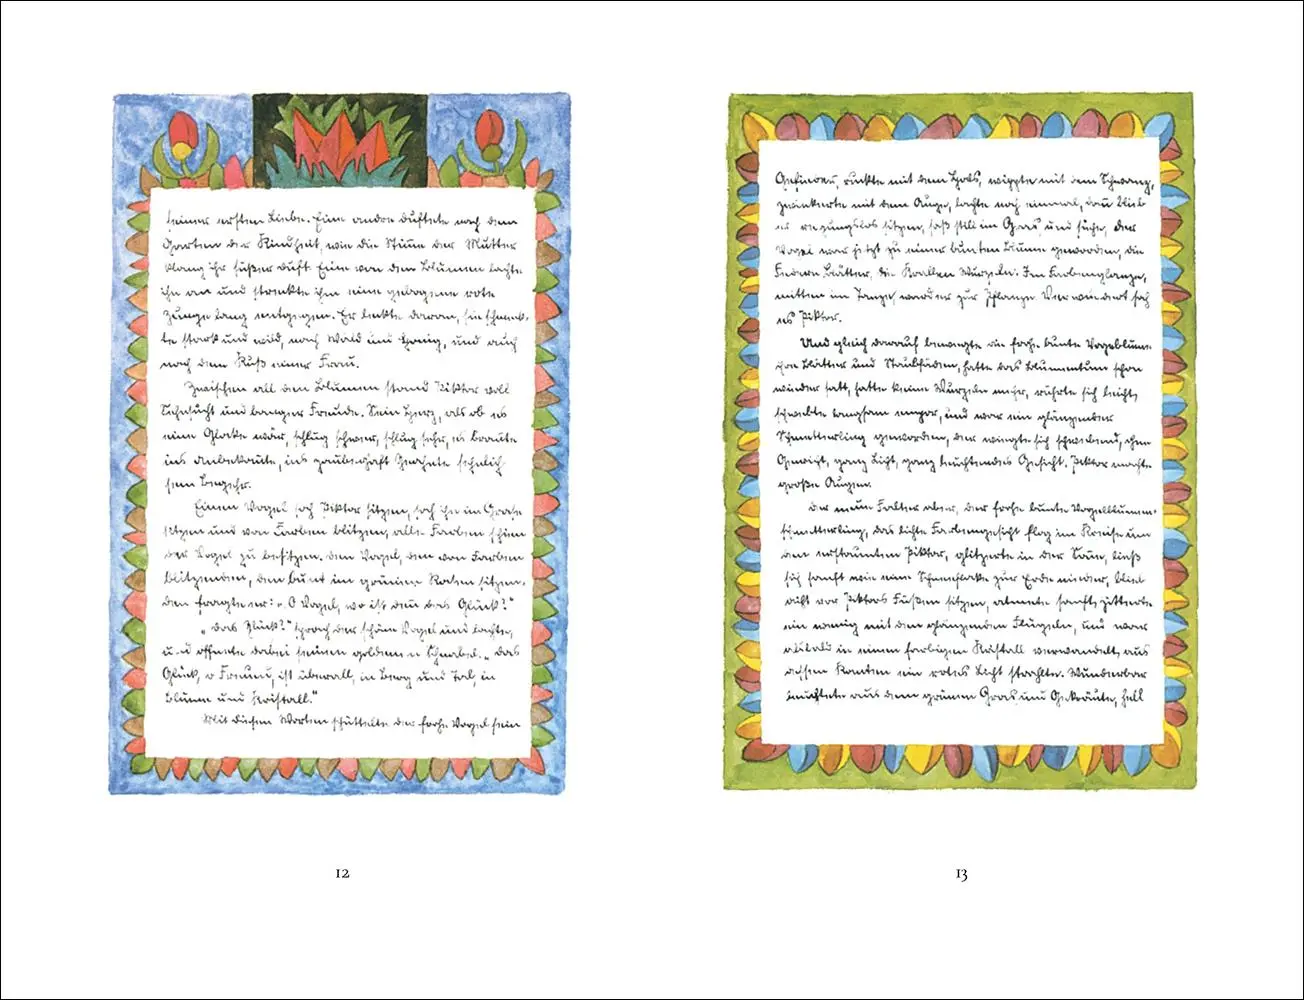 seiner ersten Liebe. Eine andre duftete nach dem
Garten der Kindheit, wie die Stimme der Mutter
klang ihr süßer Duft. Eine von den Blumen lachte
ihn an und streckte ihm eine gebogene rote
Zunge lang entgegen. Er leckte daran, sie schmeck-
te stark und wild, nach Wald und Honig, und auch
nach dem Kuß einer Frau.
Zwischen all den Blumen stand Piktor voll
Sehnsucht und banger Freude. Sein Herz, als ob es
eine Glocke wär, schlug schwer, schlug sehr, es brannte
ins Unbekannte, ins zauberhaft Geahnte sehnlich
sein Begehr.
Einen Vogel sah Piktor sitzen, sah ihn im Grase
sitzen und von Farben blitzen, alle Farben schien
der Vogel zu besitzen. Den Vogel, den von Farben
blitzenden, den bunt im grünen Rasen sitzen-
den fragte er: „O Vogel, wo ist denn das Glück?"
„Das Glück?" sprach der schöne Vogel und lachte,
und öffnete dabei seinen goldenen Schnabel. „Das
Glück, o Freund, ist überall, in Berg und Tal, in
Blume und Kristall."
Mit diesen Worten schüttelte der frohe Vogel sein
12
Gefieder, ruckte mit dem Hals, wippte mit dem Schwanz,
zwinkerte mit dem Auge, lachte noch einmal, dann blieb
er regungslos sitzen, saß still im Gras, und siehe, der
Vogel war jetzt zu einer bunten Blume geworden, die
Federn Blätter, die Krallen Wurzeln. Im Farbenglanze,
mitten im Tanze, ward er zur Pflanze. Verwundert sah
es Piktor.
Und gleich darauf bewegte die frohe bunte Vogelblume
ihre Blätter und Staubfäden, hatte das Blumentum schon
wieder satt, hatte keine Wurzeln mehr, rührte sich leicht,
schwebte langsam empor, und war ein glänzender
Schmetterling geworden, der wiegte sich schwebend, ohne
Gewicht, ganz Licht, ganz leuchtendes Gesicht. Piktor machte
große Augen.
Der neue Falter aber, der frohe bunte Vogelblumen-
schmetterling, das lichte Farbengesicht flog im Kreise um
den erstaunten Piktor, glitzerte in der Sonne, ließ
sich sanft wie eine Schneeflocke zur Erde nieder, blieb
dicht vor Piktors Füßen sitzen, atmete sanft, zitterte
ein wenig mit den glänzenden Flügeln, und war
alsbald in einen farbigen Kristall verwandelt, aus
dessen Kanten ein rotes Licht strahlte. Wunderbar
leuchtete aus dem grünen Gras und Gekräute, hell
13